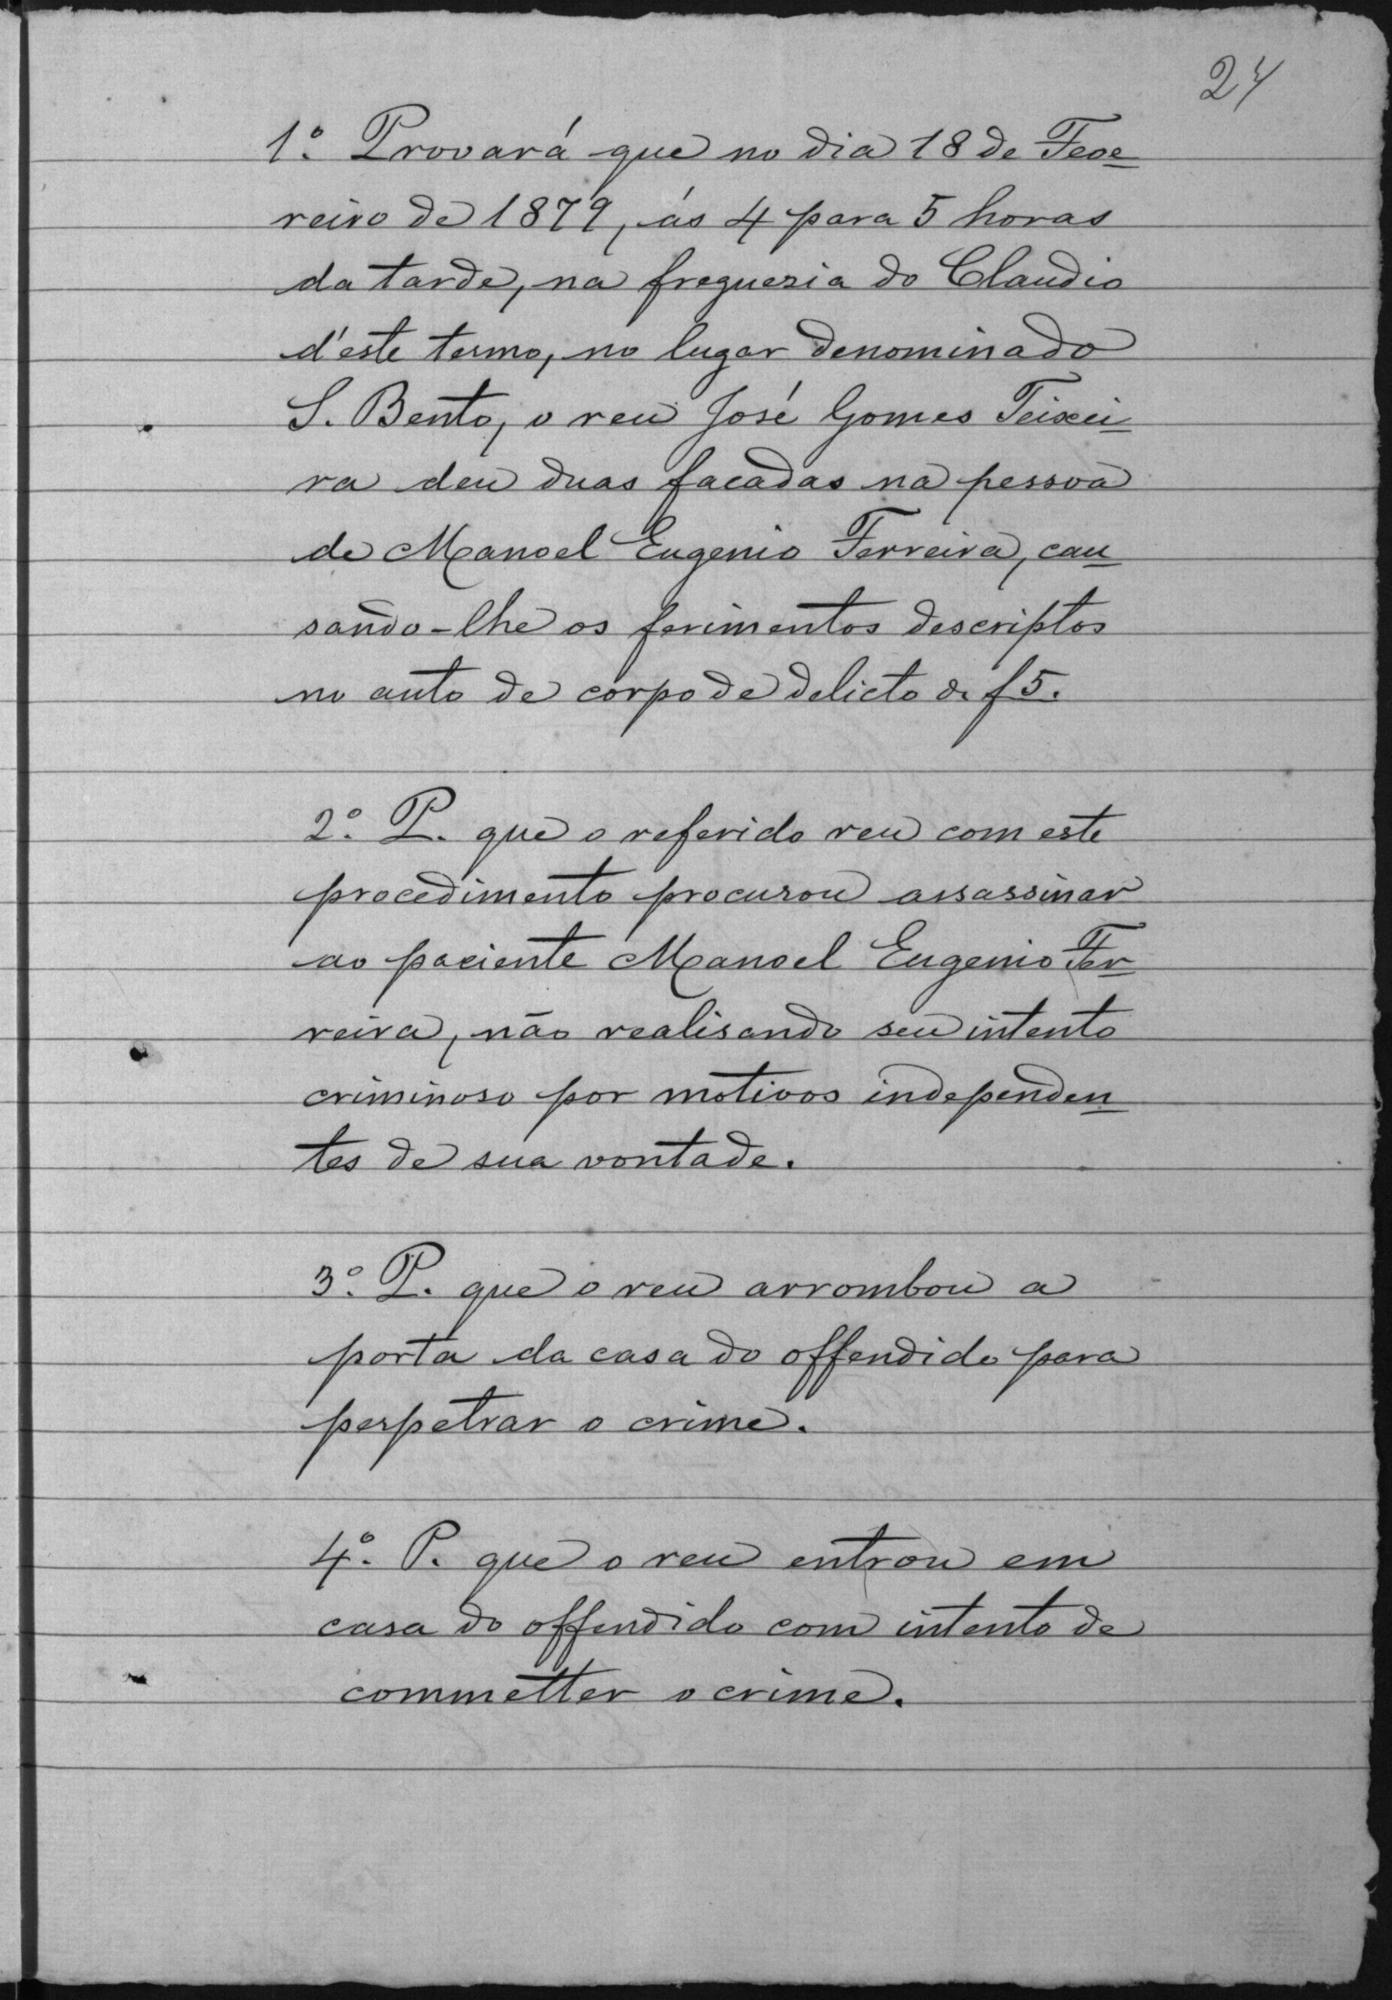 24
1º. Provará que no dia 18 de Feve-
reiro de 1879, ás 4 para 5 horas
da tarde, na freguezia do Claudio
d'este termo, no lugar denominado
S. Bento, o reu José Gomes Teixei-
ra deu duas facadas na pessoa
de Manoel Eugenio Ferreira, cau-
sando-lhe os ferimentos descriptos
no auto de corpo de delicto de f 5.
2º. P. que o referido reu com este
procedimento procurou assassinar
ao paciente Manoel Eugenio Fer-
reira, não realisando seu intento
criminoso por motivos independen-
tes de sua vontade.
3º. P. que o reu arrombou a
porta da casa do offendido para
perpetrar o crime.
4º. P. que o reu entrou em
casa do offendido com intento de
commetter o crime.